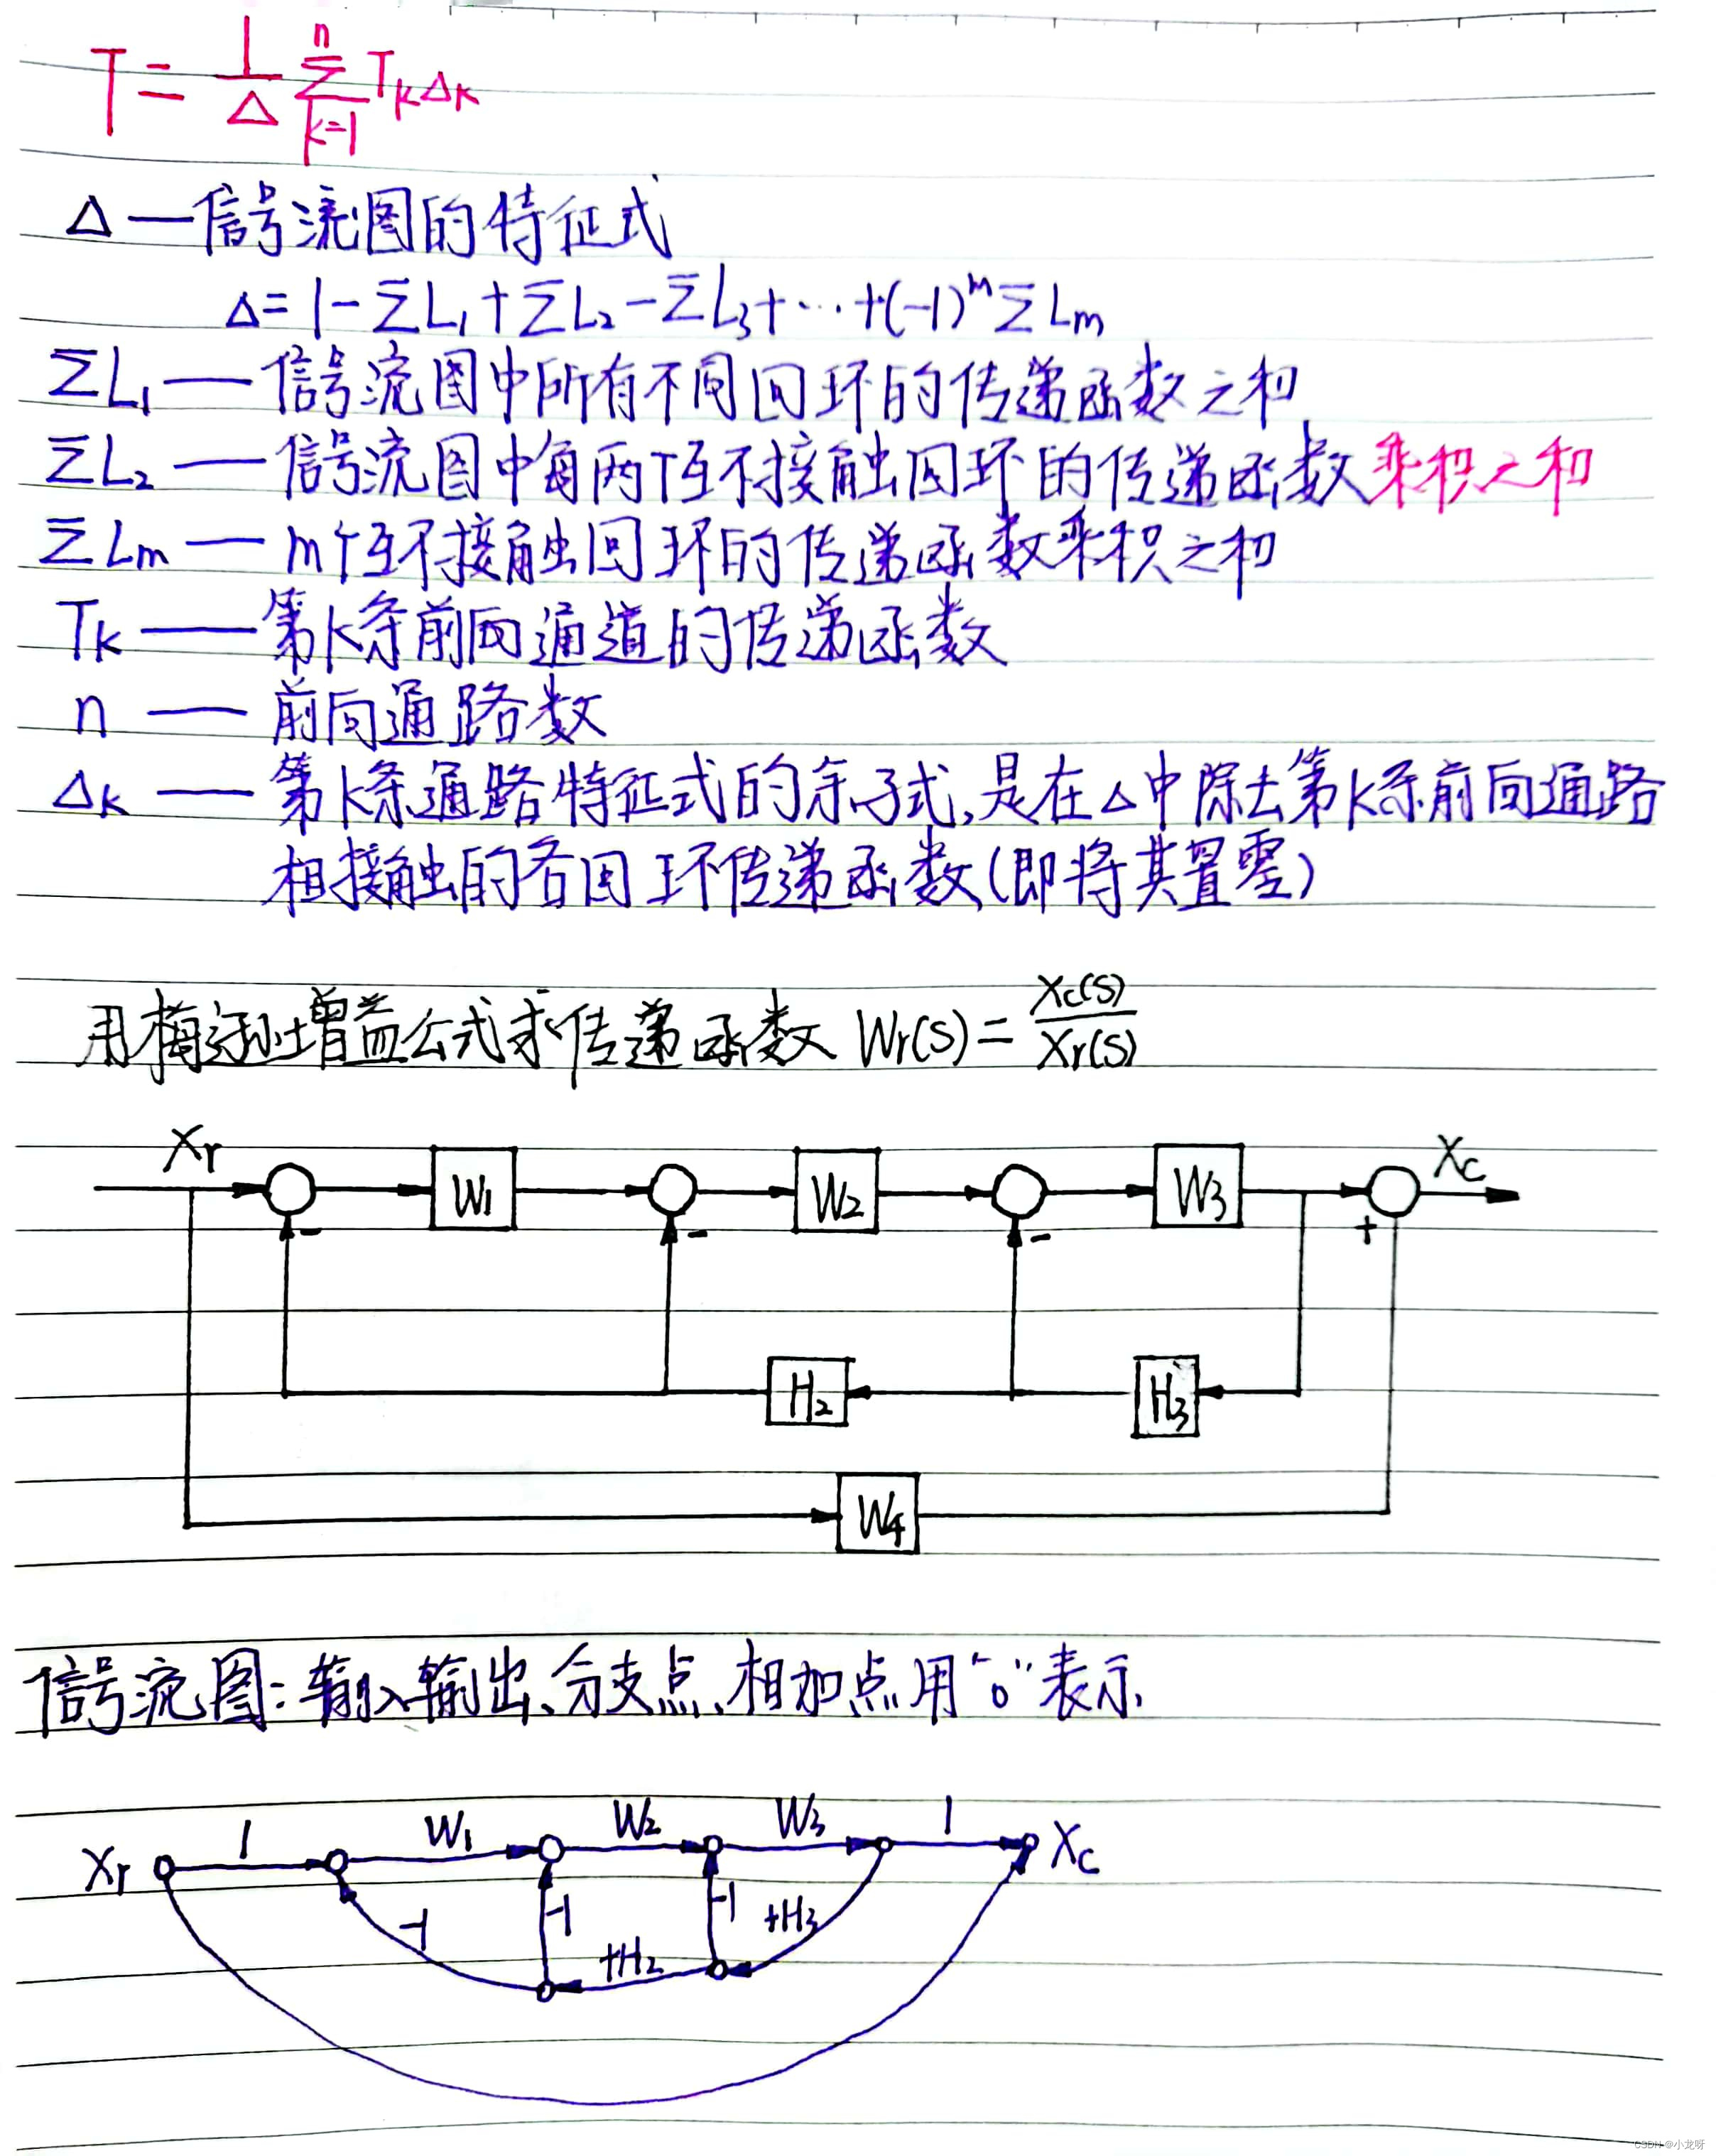 T = 1/Δ n∑k=1 TkΔk
Δ — 信号流图的特征式
Δ = 1 - ΣL₁ + ΣL₂ - ΣL₃ + ⋯ + (-1)ᵐ ΣLm
ΣL₁ — 信号流图中所有不同回环的传递函数之和
ΣL₂ — 信号流图中每两个互不接触回环的传递函数乘积之和
ΣLm — m个互不接触回环的传递函数乘积之和
Tk — 第k条前向通道的传递函数
n — 前向通路数
Δk — 第k条通路特征式的余子式,是在Δ中除去第k条前向通路
相接触的各回环传递函数(即将其置零)
用梅逊增益公式求传递函数 Wr(s) = Xc(s)/Xr(s)
Xr W1 W2 W3 Xc
- - - +
H2 H3
W4
信号流图:输入输出、分支点、相加点用“o”表示
Xr 1 W1 W2 W3 1 Xc
-1 -1 -1 +H3
+H2
CSDN @小龙呀